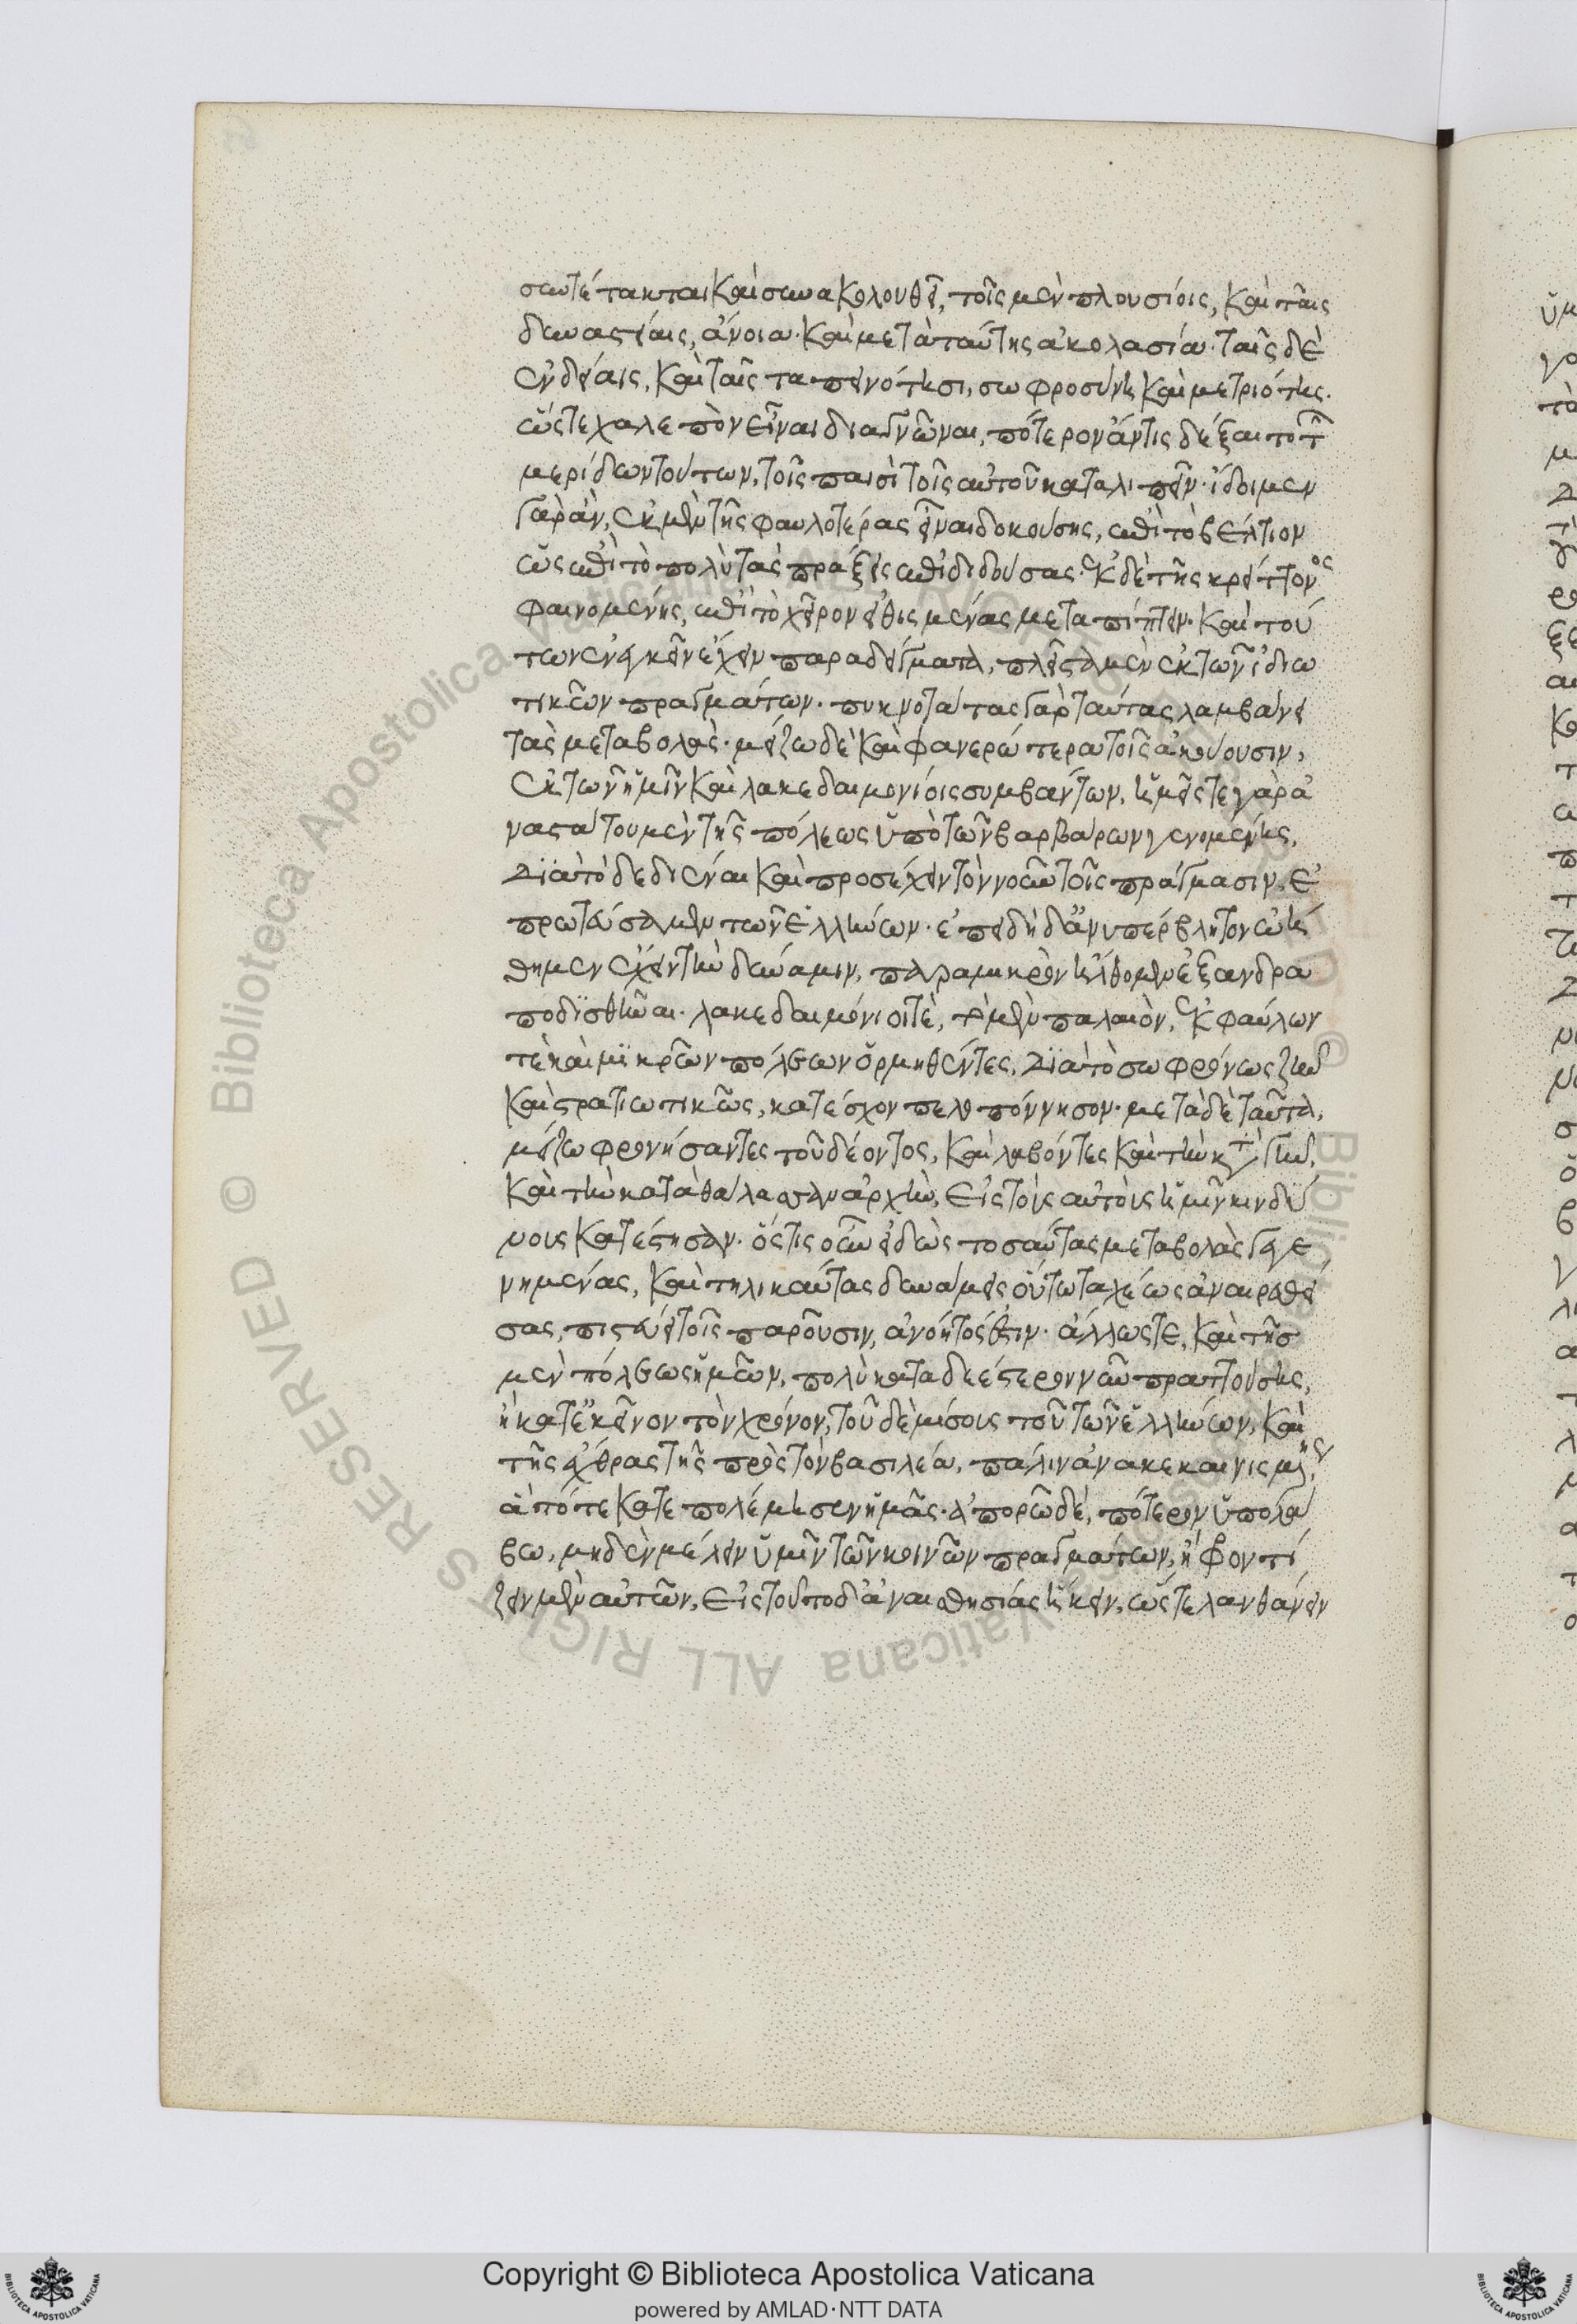 συντέτακται καὶ συνακολουθεῖ, τοῖς μὲν πλουσίοις, καὶ ταῖς
δυναστείαις, ἄνοια· καὶ μετὰ ταύτης ἀκολασία· ταῖς δὲ
ἐνδείαις, καὶ ταῖς ταπεινότησι, σωφροσύνη καὶ μετριότης.
ὥστε χαλεπὸν εἶναι διαγνῶναι, πότερον ἄν τις δέξαιτο τ̑
μερίδων τούτων, τοῖς παισὶ τοῖς αὑτοῦ καταλιπεῖν· ἴδοιμεν
γὰρ ἂν, ἐκ μὲν τῆς φαυλοτέρας εἶναι δοκούσης, ἐπὶ τὸ βέλτιον
ὡς ἐπὶ τὸ πολὺ τὰς πράξεις ἐπιδιδούσας· ἐκ δὲ τῆς κρείττονος
φαινομένης, ἐπὶ τὸ χεῖρον εἰθισμένας μεταπίπτειν· καὶ τού
των ἐνεγκεῖν ἔχειν παραδείγματα, πλεῖστα μὲν ἐκ τῶν ἰδιω
τικῶν πραγμάτων· πυκνοτάτας γὰρ ταύτας λαμβάνει
τὰς μεταβολὰς· μείζω δὲ καὶ φανερώτερα τοῖς ἀκούουσιν,
ἐκ τῶν ἡμῖν καὶ λακεδαιμονίοις συμβάντων, ἡμεῖς τε γὰρ ἀ
ναστάτου μὲν τῆς πόλεως ὑπὸ τῶν βαρβάρων γενομένης,
διὰ τὸ δεδιέναι καὶ προσέχειν τὸν νοῦν τοῖς πράγμασιν, ἐ
πρωτεύσαμεν τῶν ἑλλήνων· ἐπειδὴ δ' ἀνυπέρβλητον ᾠή
θημεν ἔχειν τὴν δύναμιν, παρὰ μικρὸν ἤλθομεν ἐξανδρα
ποδισθῆναι· λακεδαιμόνιοί τε, τὸ μὲν παλαιὸν, ἐκ φαύλων
τὲ καὶ μικρῶν πόλεων ὁρμηθέντες, διὰ τὸ σωφρόνως ζῆν
καὶ στρατιωτικῶς, κατέσχον πελοπόννησον· μετὰ δὲ ταῦτα,
μεῖζω φρονήσαντες τοῦ δέοντος, καὶ λαβόντες καὶ τὴν κτ γῆν,
καὶ τὴν κατὰ θάλασσαν ἀρχὴν, εἰς τοὺς αὐτοὺς ἡμῖν κινδύ
νους κατέστησαν· ὅστις οὖν εἰδὼς τοσαύτας μεταβολὰς γεγε
νημένας, καὶ τηλικαύτας δυνάμεις οὕτω ταχέως ἀναιρεθεί
σας, πιστεύει τοῖς παροῦσιν, ἀνόητός ἐστιν· ἄλλως τε, καὶ τῆς
μὲν πόλεως ἡμῶν, πολὺ καταδεέστερον νῦν πραττούσης,
ἢ κατ' ἐκεῖνον τὸν χρόνον, τοῦ δὲ μίσους τοῦ τῶν ἑλλήνων, καὶ
τῆς ἔχθρας τῆς πρὸς τὸν βασιλέα, πάλιν ἀνακεκαινισμένης,
ἃ τότε κατεπολέμησεν ἡμᾶς· ἀπορῶ δὲ, πότερον ὑπολά
βω, μηδὲν μέλειν ὑμῖν τῶν κοινῶν πραγμάτων, ἢ φροντί
ζειν μὲν αὐτῶν, εἰς τοῦτο δ' ἀναισθησίας ἥκειν, ὥστε λανθάνειν
© Biblioteca Apostolica Vaticana ALL RIGHTS RESERVED
Copyright © Biblioteca Apostolica Vaticana
powered by AMLAD·NTT DATA